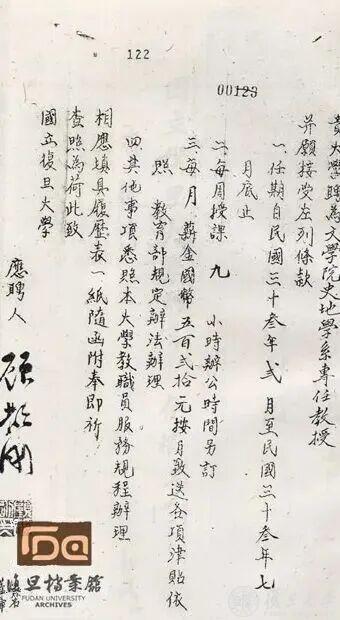 122
00123
貴大學聘為文學院史地學系專任教授
并願接受左列條款
一、任期自民國三十叁年弍月至民國三十叁年七
月底止
二、每周授課九小時辦公時間另訂
三、每月薪金國幣五百弍拾元按月致送各項津貼依
照教育部規定辦法辦理
四、其他事項悉照本大學教職員服務規程辦理
相應填具履歷表一紙隨函附奉即祈
查照為荷此致
國立復旦大學
應聘人 顧頡剛
復旦檔案館
FUDAN UNIVERSITY
ARCHIVES